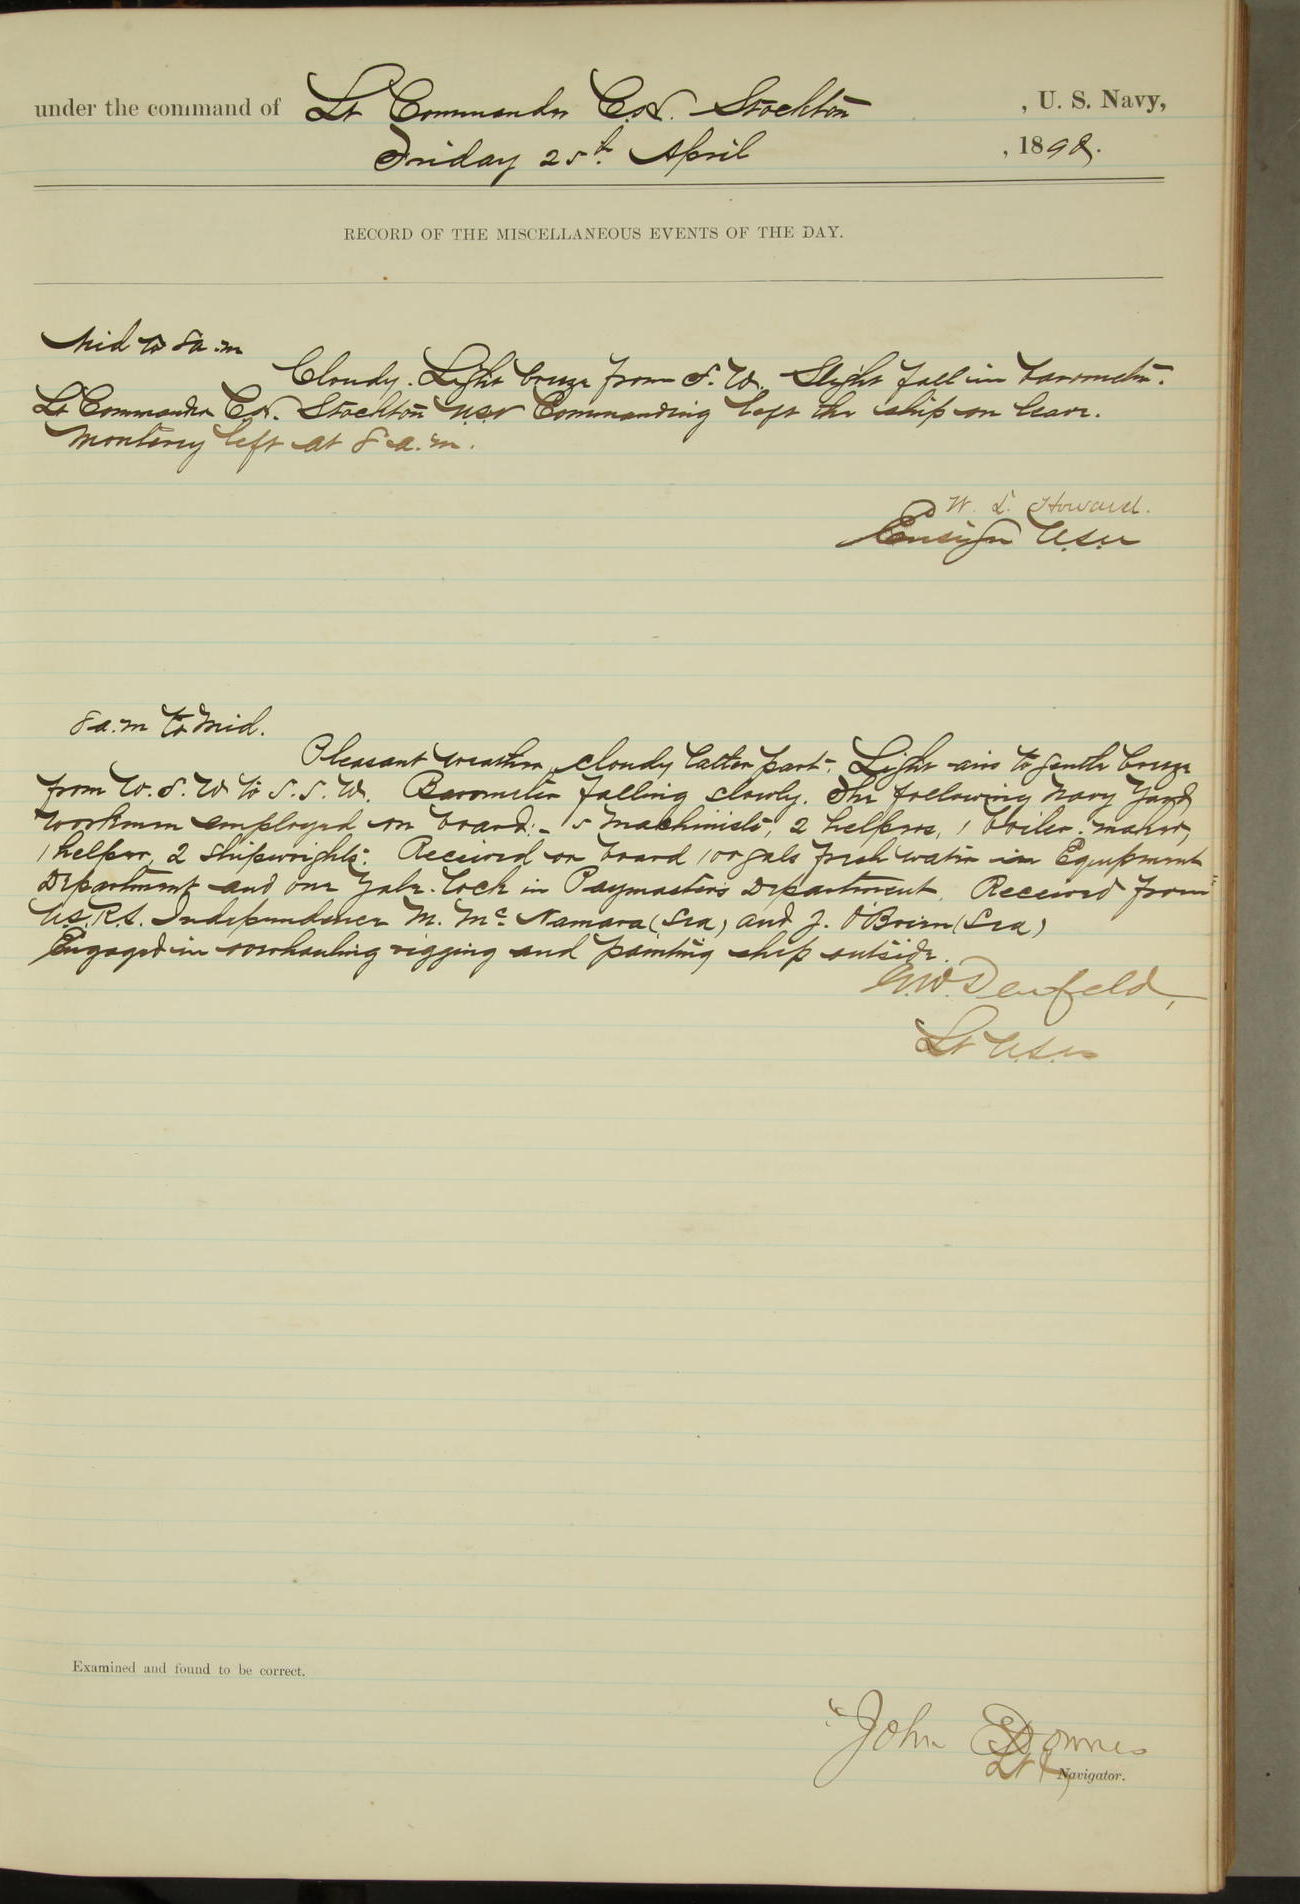 under the command of Lt Commander C. H. Stockton, U. S. Navy,
Friday 25th April, 1890.
RECORD OF THE MISCELLANEOUS EVENTS OF THE DAY.
Mid to 8 a.m
Cloudy. Light breeze from S. W. Slight fall in barometer.
Lt Commander C. H. Stockton USN Commanding left the ship on leave.
Monterey left at 8 a.m.
W. L. Howard.
Ensign U.S.N
8 a.m to Mid.
Pleasant weather, cloudy latter part. Light airs to gentle breeze
from W. S. W to S. S. W. Barometer falling slowly. The following Navy Yard
workmen employed on board:- 5 Machinists, 2 helpers, 1 boiler-maker,
1 helper, 2 shipwrights. Received on board gals fresh water in Equipment
Department and one Yale lock in Paymaster's Department. Received from
U.S.R.S. Independence M. Mc Namara (Sea) and J. O'Brien (Sea)
Engaged in overhauling rigging and painting ship outside.
G. W. Denfeld,
Lt U.S.N
Examined and found to be correct.
John Downes
Lt &
Navigator.